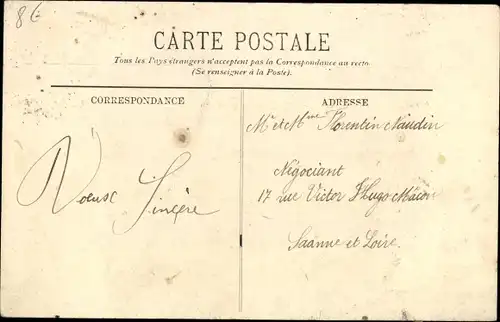 86
CARTE POSTALE
Tous les Pays étrangers n'acceptent pas la Correspondance au recto
(Se renseigner à la Poste).
CORRESPONDANCE
Voeux Sincère
ADRESSE
Mr et Mme Florentin Naudin
Négociant
17 rue Victor Hugo Mâcon
Saanne et Loire